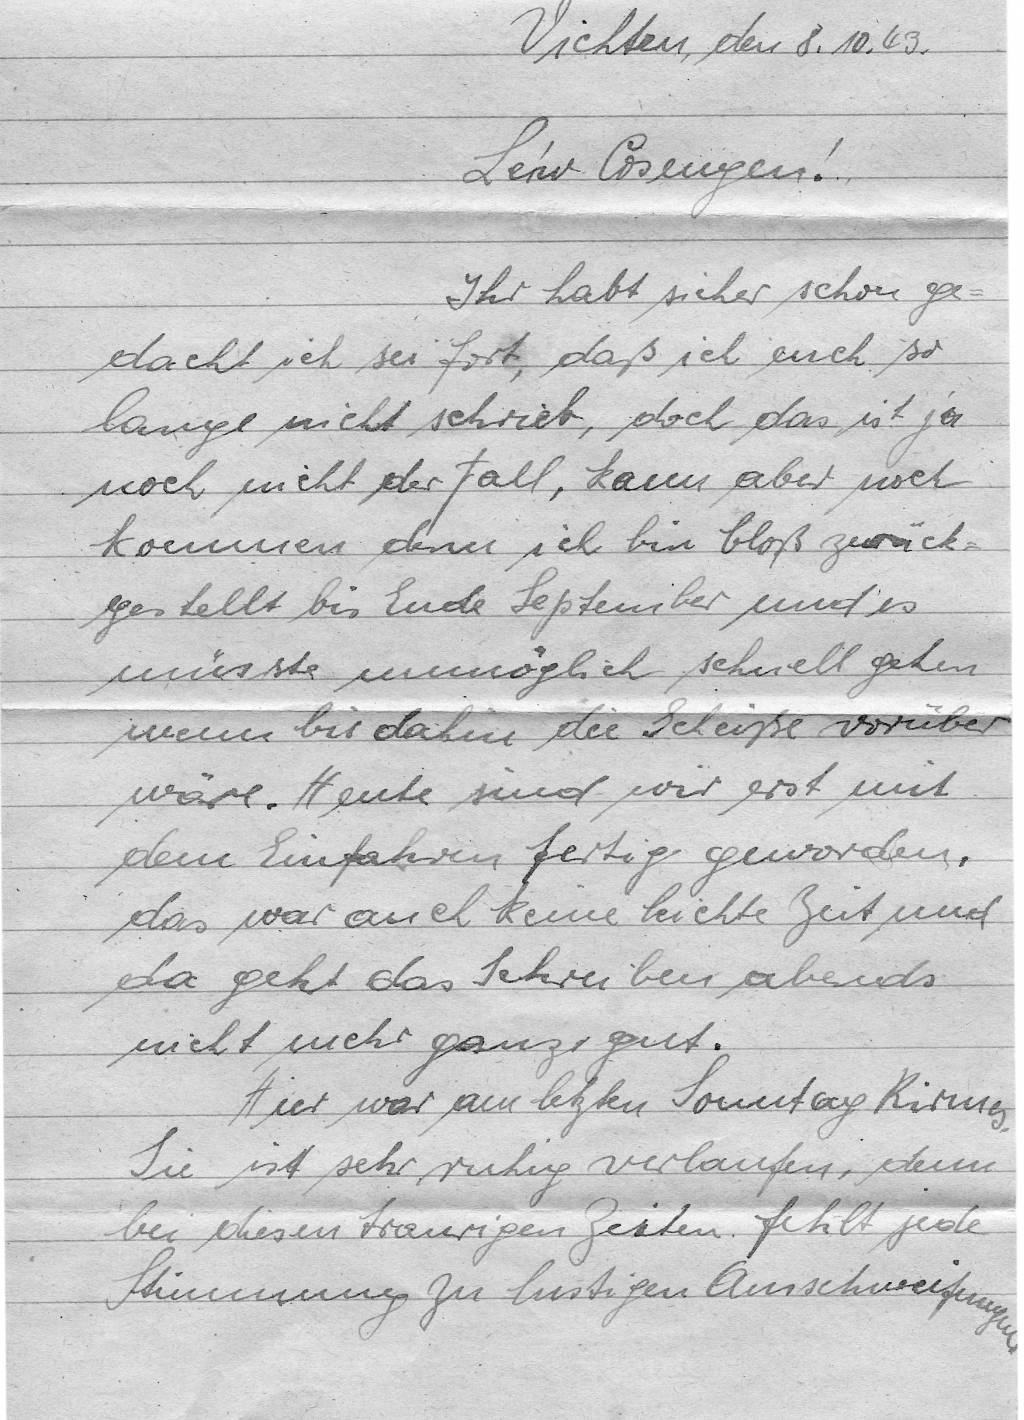 Vichten, den 8. 10. 43.
Léiw Cosengen!
Ihr habt sicher schon ge=
dacht ich sei fort, daß ich euch so
lange nicht schrieb, doch das ist ja
noch nicht der Fall, kann aber noch
kommen denn ich bin bloß zurück=
gestellt bis Ende September und es
müsste unmöglich schnell gehen
wenn bis dahin die Scheiße vorüber
wäre. Heute sind wir erst mit
dem Einfahren fertig geworden,
das war auch keine leichte Zeit und
da geht das Schreiben abends
nicht mehr ganz gut.
Hier war am letzten Sonntag Kirmes.
Sie ist sehr ruhig verlaufen, denn
bei diesen traurigen Zeiten fehlt jede
Stimmung zu lustigen Ausschweifungen.